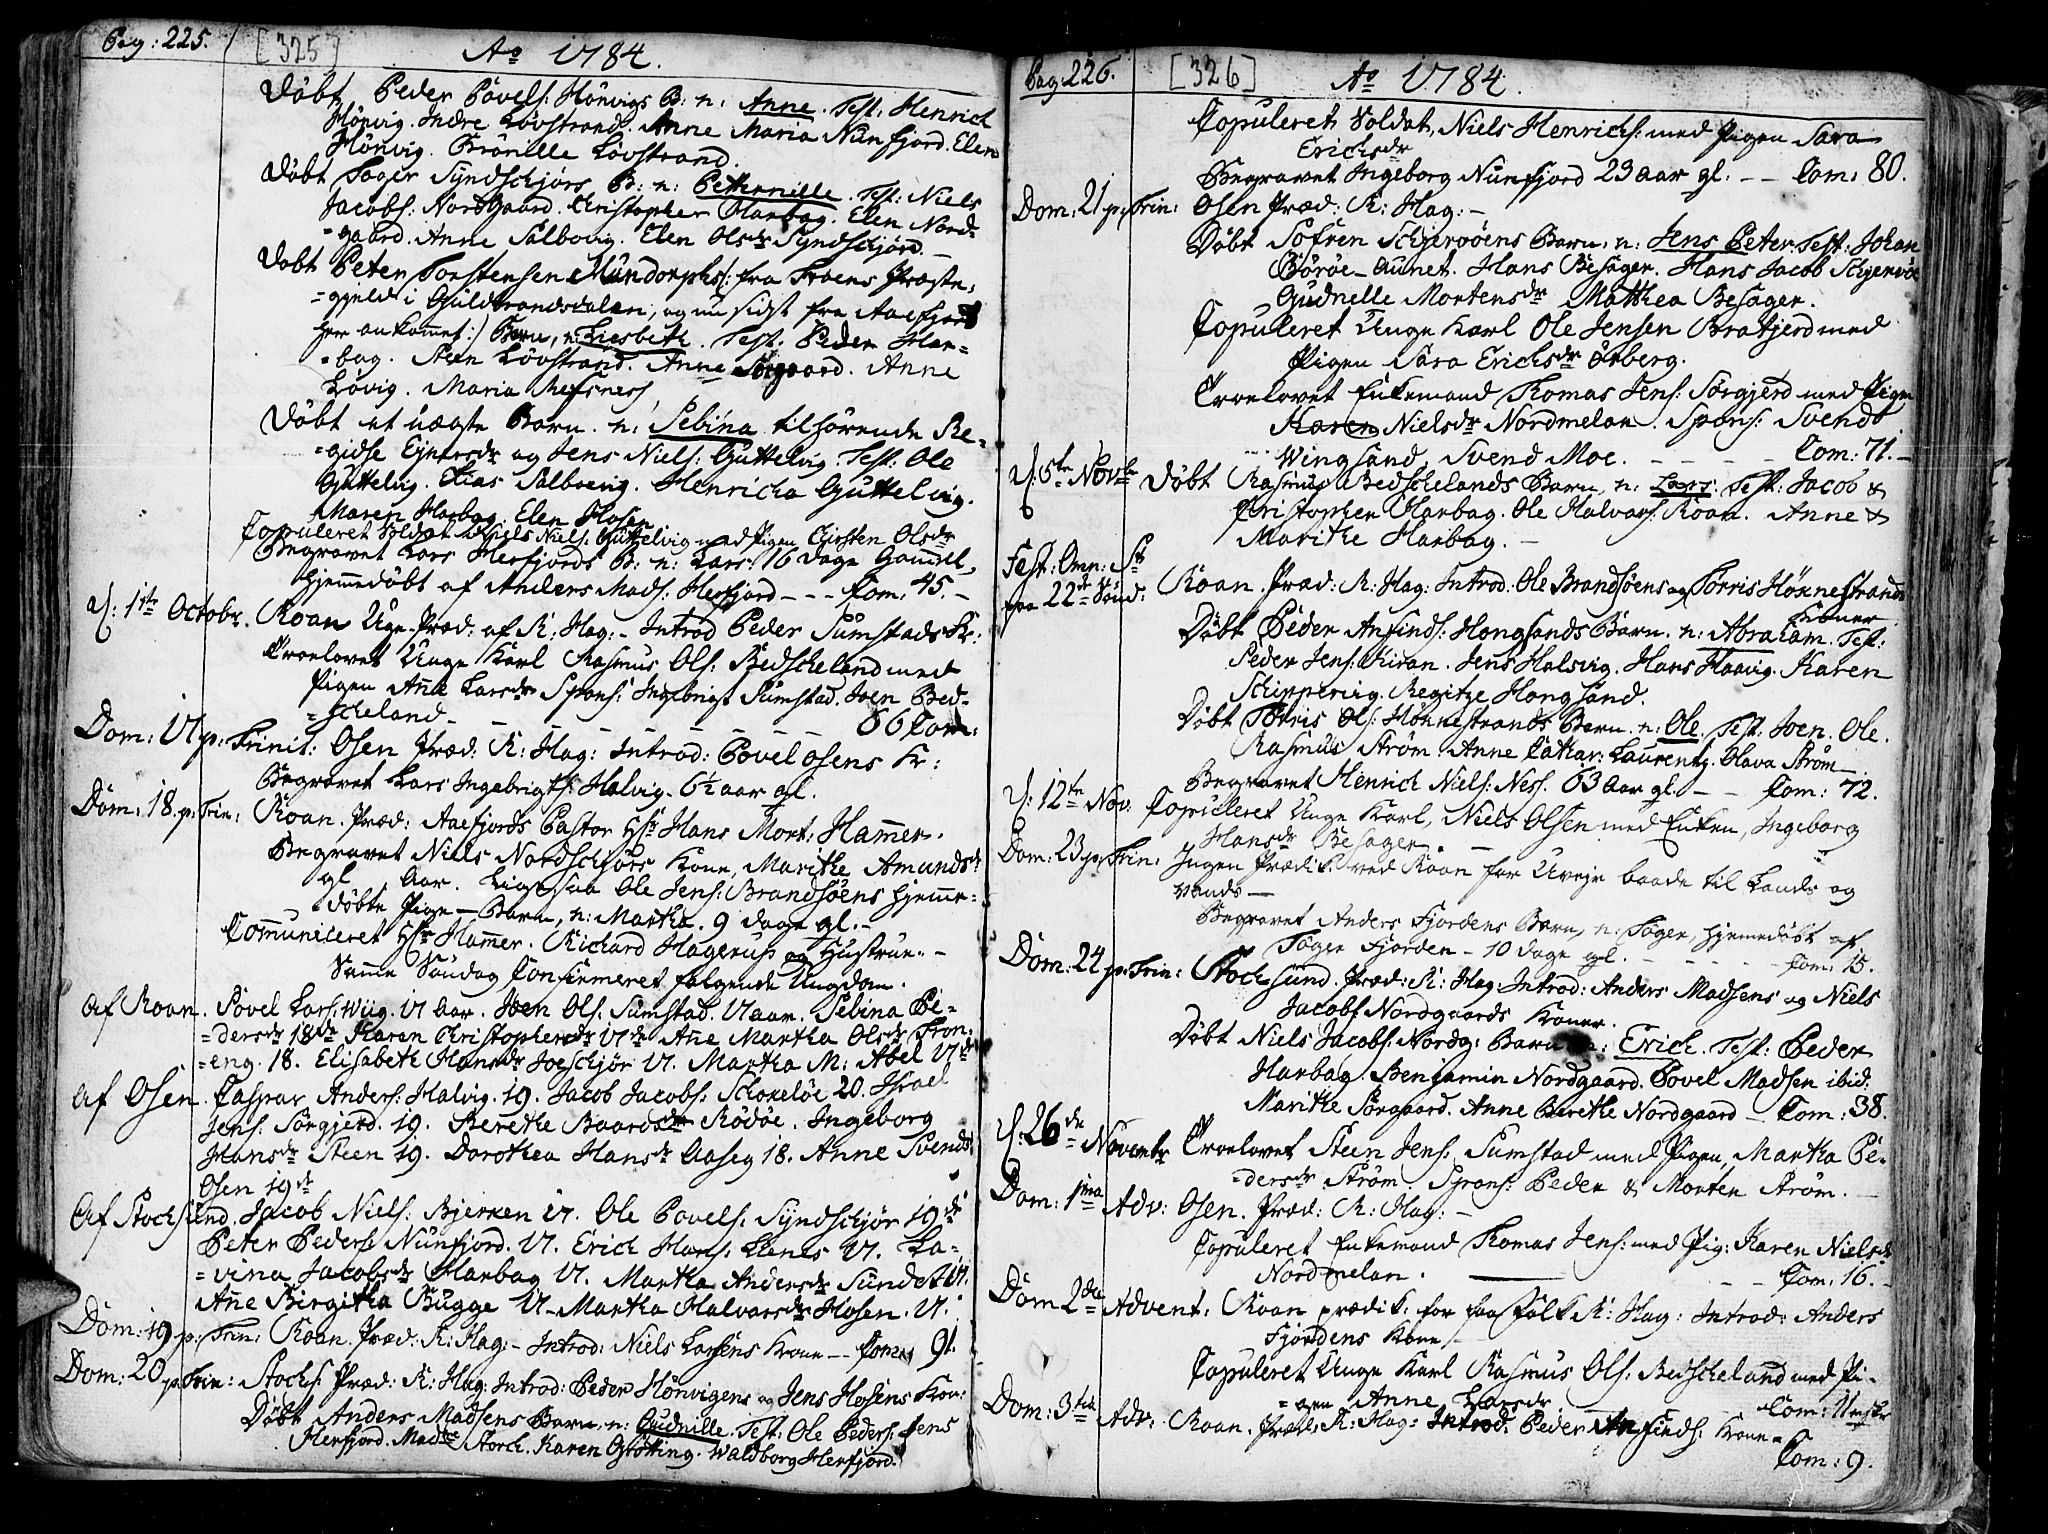 Pag: 225. [325] Ao 1784.
Døbt Peder Povels: Hønvigs B: n: Anne. Test: Henrich
Hønvig. Indre Løvstrand. Anne Maria Nunfjord. Elen
Hønvig. Brønille Løvstrand.
Døbt Toger Syndschjørs B: n: Pethernille. Test: Niels
Jacobs: Nordgaard. Christopher Harbag. Elen Nord=
=gaard. Anne Salbovig. Elen Olsdr Syndschjøre.
Døbt Peter Torstensen Mündorphs: fra Froens Præste,
=gjeld i Guldbrandsdalen, og nu sidst fra Aaefjord
her ankommet:) Barn, n: Liesbeth. Test: Peder Har=
=bag. Steen Løvstrand. Anne Sørgaard. Anne
Løvig. Maria Refsnes,
Døbt et uægte Barn. n: Sebina tilhørende Re=
=gidse Ejnersdr og Jens Niels: Guttelvig. Test: Ole
Guttelvig. Elias Salboevig. Henricha Guttelvig.
Maren Harbag. Elen Hosen
Copuleret Soldat Niels Niels: Guttelvig med Pigen Chirsten Olsdr
Begravet Lars Herfjords B: n: Lars: 16 Dage Gammel,
hjemmedøbt af Anders Mads: Herfjord - - - Com: 45. -
d: 1ste Octobr. Roan Uge-Præd: af R: Hag: - Introd Peder Sumstads Kr:
Trolovet Unge Karl Rasmus Ols: Bedscheland med
Pigen Anne Larsdr Spons: Ingebrigt Sumstad. Joen Bed=
=scheland - - - - - - - - 86 Com:
Dom: 17 p: Trinit: Osen Præd: R: Hag: Introd: Povel Osens Kr:
Begravet Lars Ingebrigts: Halvig. 6½ aar gl.
Dom: 18. p: Trin: Roan. Præd: Aaefjords Pastor Hr: Hans Mort: Hammer.
Begravet Niels Nordschjørs Kone, Marithe Amundsdr
gl Aar. Ligesaa Ole Jens: Brandsøens hjemme=
døbte Pige-Barn, n: Martha. 9 dage gl. -
Communiceret Hr Hammer. Richard Hagerup og Hustrue. -
Samme Søndag Confirmeret følgende Ungdom.
Af Roan. Povel Lars: Wiig. 17 Aar. Joen Ols: Sumstad. 17 aar. Sebina Pe=
=dersdr 18de Karen Christophersdr 17de Anne Martha Olsdr Fron=
=eng. 18. Elisabeth Hansdr Joeschjør 17. Martha M: Abel 17de
Af Osen. Caspar Anders: Halvig. 19. Jacob Jacobs: Schoxeløe 20. Israel
Jens: Sørgjerd. 19. Berethe Baardsdr Rødøe. Ingeborg
Hansdr Steen 19. Dorothea Hansdr Aaseg 18. Anne Svends:
Osen 19de
Af Stochsund. Jacob Niels: Bjerken 17. Ole Povels: Syndschjør 19de
Peter Peders: Nunfjord. 17. Erich Hans: Lenes 17. La=
=vina Jacobsdr Harbag 17. Martha Andersdr Sundet 17.
Anne Birgitha Bugge 17. Martha Halvarsdr Hosen. 17.
Dom: 19 p: Trin: Roan. Præd: R: Hag: - Introd: Niels Larsens Kone - - Com: 91.
Dom: 20 p: Trin: Stochs: Præd: R: Hag: Introd: Peder Hønvigens og Jens Hosens Kon:
Døbt Anders Madsens Barn, n: Gudnille. Test: Ole Peders: Jens
Herfjord. Madme Storch. Karen Grøtting. Waldborg Herfjord.
Pag: 226. [326] Ao 1784.
Copuleret Soldat, Niels Henrichs: med Pigen Sara
Erichsdr
Begravet Ingeborg Nunfjord 23 aar gl: - - Com: 80.
Dom: 21 p: Trin: Osen Præd: R: Hag: -
Døbt Søfren Schjervøens Barn: n: Jens Peter Test: Johan
Børøe-Aunet. Hans Besager. Hans Jacob Schjervøe
Gudnelle Mortensdr Matthea Besager.
Copuleret Unge Karl Ole Jensen Bratjerd med
Pigen Sara Erichsdr Ørberg.
Trolovet Enkemand Thomas Jens: Sørgjerd med Pigen
Karen Nielsdr Nordmelan. Spons: Svend
Wingsand. Svend Moe. - - - - - Com: 71. -
d: 5te Novbr Døbt Rasmus Bedschelands Barn, n: Lars. Test: Jacob &
Christopher Harbag. Ole Halvars: Roan. Anne &
Marithe Harbag. -
Fest: Omn: St:
paa 22de Sønd: Roan. Præd: R: Hag: Introd: Ole Brandsøens og Torris Hønnestrands
Koner.
Døbt Peder Anfinds: Hongsands Barn. n: Abraham. Test:
Peder Jens: Kiran. Jens Halsvig. Hans Haavig. Karen
Schippervig. Regitze Hongsand.
Døbt Torris Ols: Hønnestrands Barn. n: Ole. Test: Joen. Ole.
Rasmus Strøm. Anne Cathar: Laurentz. Olava Strøm -
Begravet Henrich Niels: Ness. 63 Aar gl. - - Com: 72.
d: 12te Nov. Copuleret Unge Karl, Niels Olsen med Enken, Ingeborg
Hansdr Besager. -
Dom: 23 p: Trin: Ingen Prædik: ved Roan for Uvejr baade til Lands og
Vands -
Begravet Anders Fjordens Barn, n: Toger, hjemedøbt af
Toger Fjorden - 10 Dage gl. - - - - - Com: 15.
Dom: 24 p: Trin: Stochsund. Præd: R: Hag: Introd: Anders Madsens og Niels
Jacobs: Nordgaards Koner.
Døbt Niels Jacobs: Nordg: Barn n: Erich. Test: Peder
Harbag. Benjamin Nordgaard. Povel Madsen ibid:
Marithe Sørgaard. Anne Berethe Nordgaard - Com: 38.
d: 26de Novembr Trolovet Steen Jens: Sumstad med Pigen, Martha Pe=
=dersdr Strøm. Spons: Peder & Morten Strøm.
Dom: 1ma Adv: Osen. Præd: R: Hag: -
Copuleret Enkemand Thomas Jens: med Pig: Karen Nielsdr
Nordmelan. - - - Com: 16. -
Dom 2da Advent: Roan prædik: for faa Folk R: Hag: Introd: Anders
Fjordens Kone,
Copuleret Unge Karl Rasmus Ols: Bedscheland med Pi=
=gen Anne Larsdr - - - Com: 11
Dom: 3tia Adv: Roan. Præd: R: Hag: Introd: Peder Anfinds: Kone -
Com: 9.